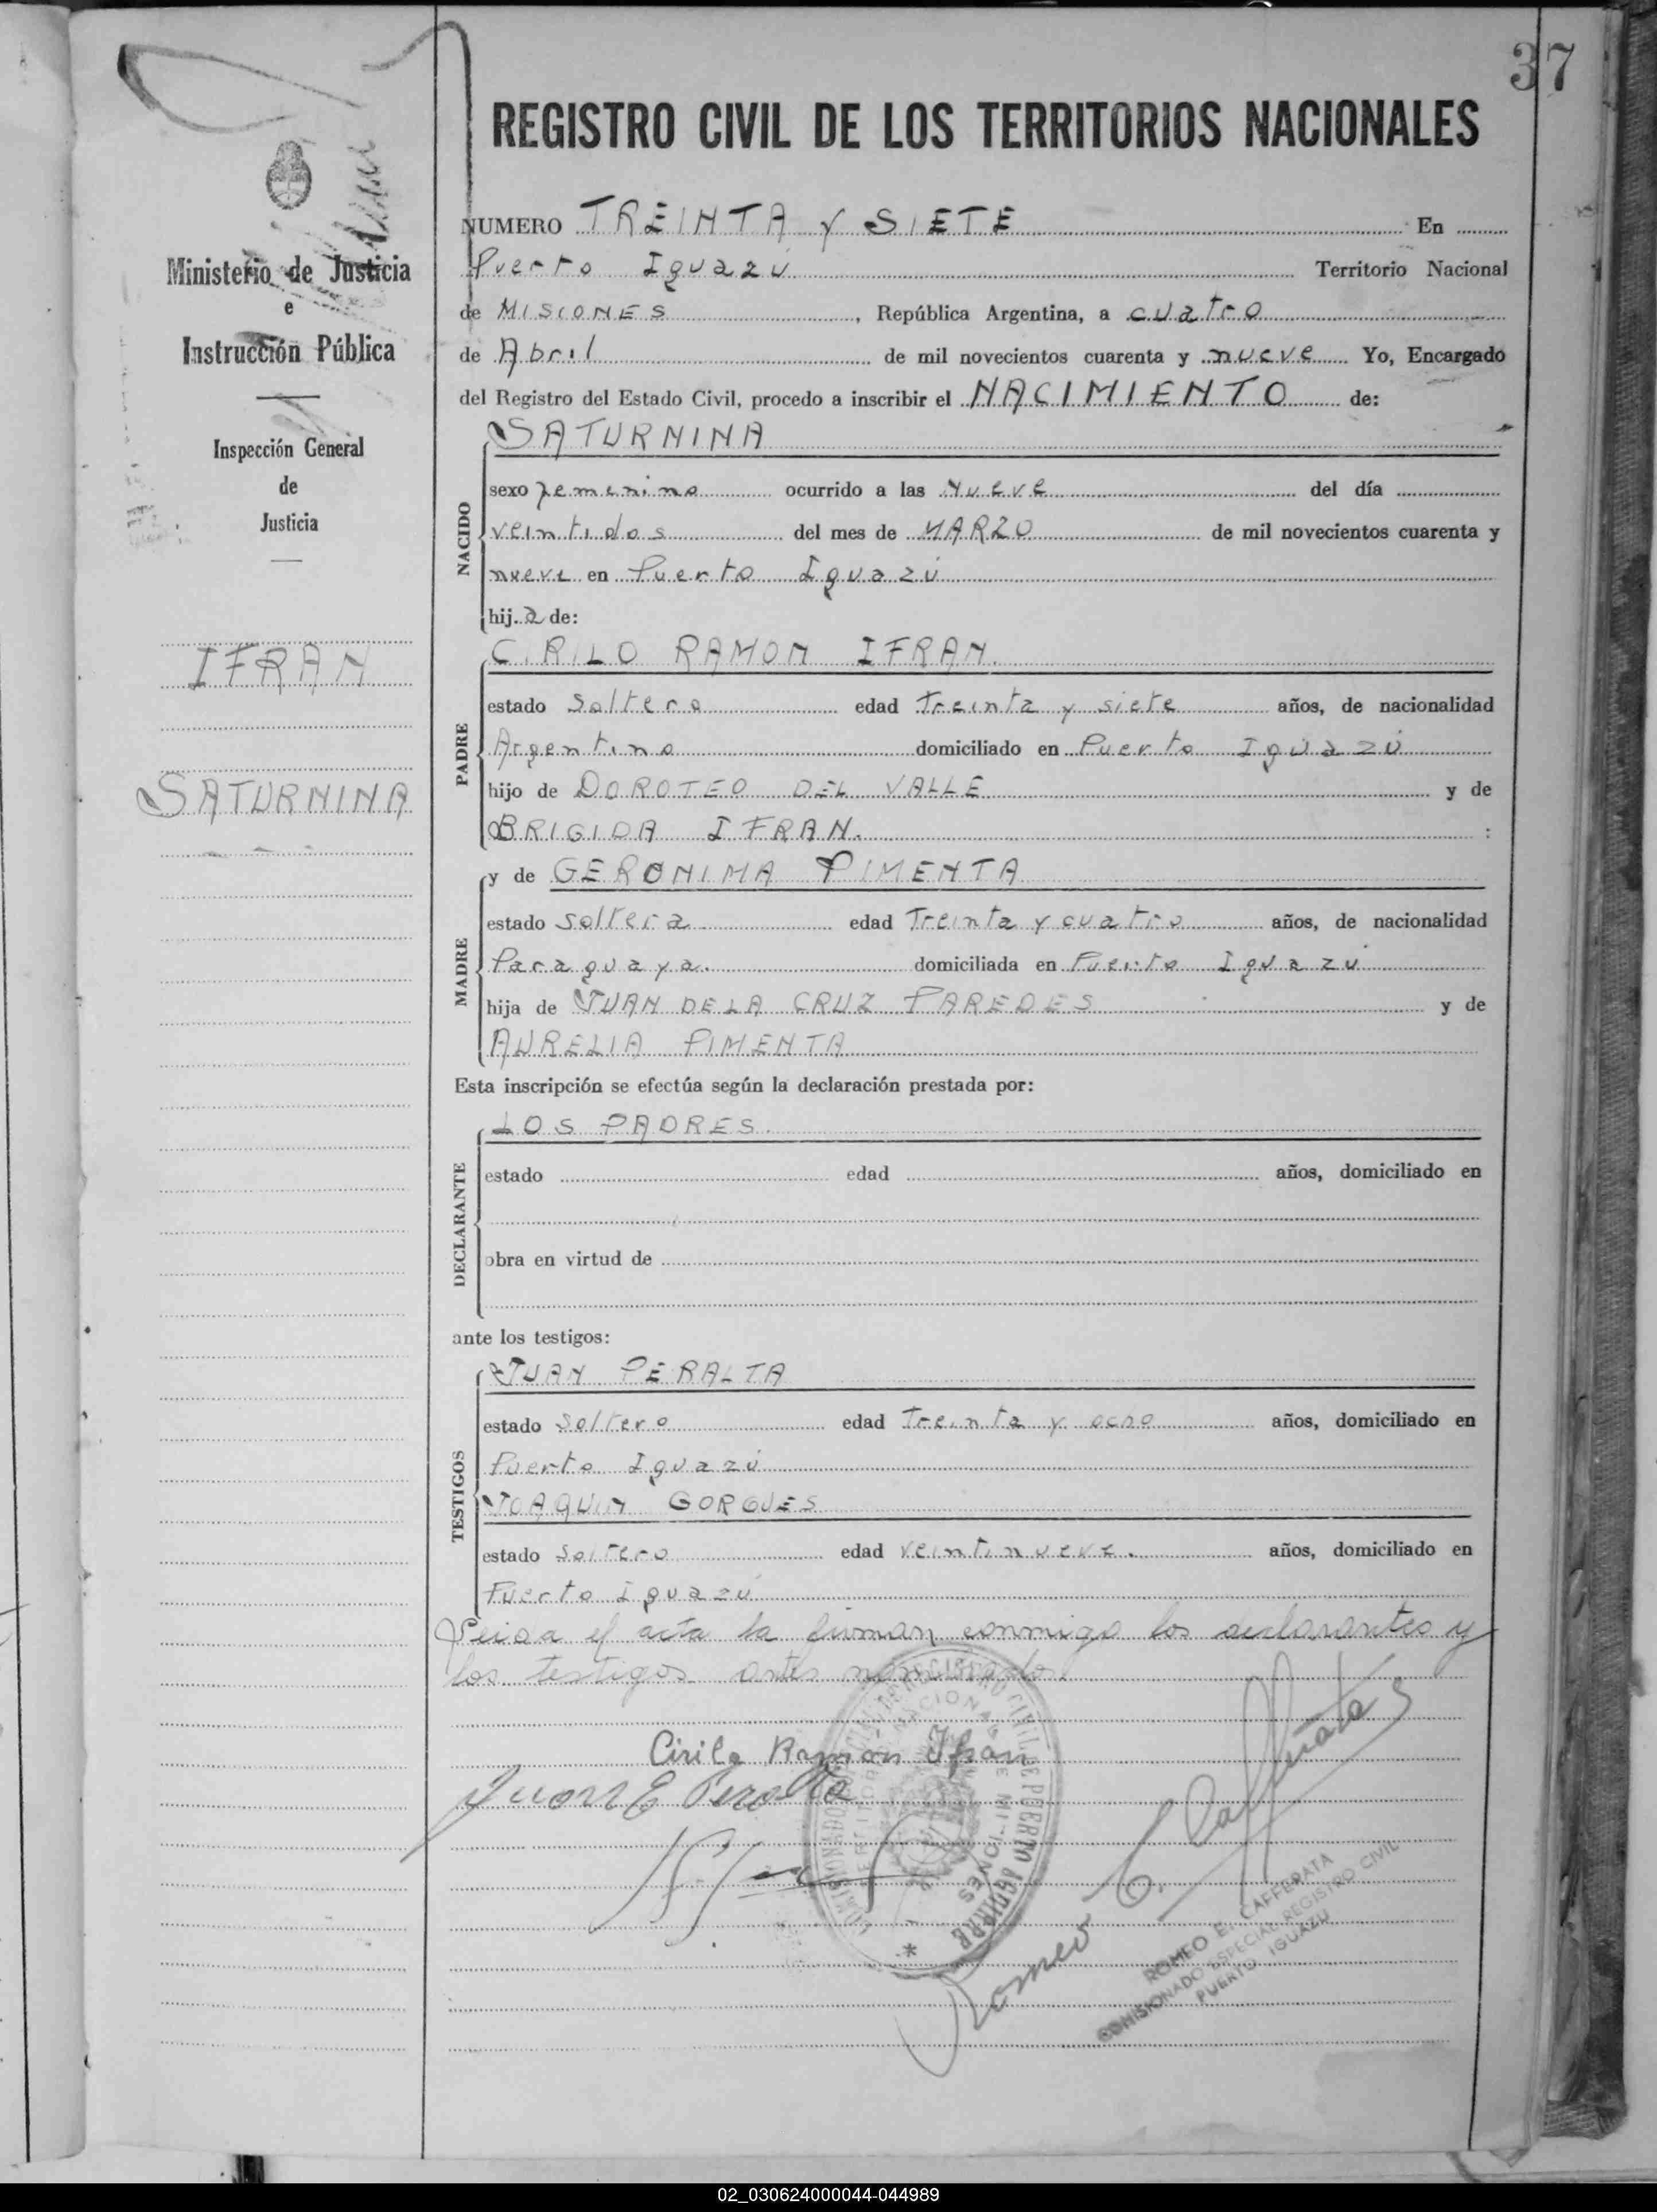 37
REGISTRO CIVIL DE LOS TERRITORIOS NACIONALES
Ministerio de Justicia
e
Instrucción Pública
Inspección General
de
Justicia
IFRAN
SATURNINA
NUMERO TREINTA Y SIETE En
Puerto Iguazú Territorio Nacional
de MISIONES, República Argentina, a cuatro
de Abril de mil novecientos cuarenta y nueve Yo, Encargado
del Registro del Estado Civil, procedo a inscribir el NACIMIENTO de:
SATURNINA
NACIDO
sexo femenino ocurrido a las Nueve del día
veintidos del mes de MARZO de mil novecientos cuarenta y
nueve en Puerto Iguazú
hija de:
CIRILO RAMON IFRAN.
PADRE
estado Soltero edad Treinta y siete años, de nacionalidad
Argentino domiciliado en Puerto Iguazú
hijo de DOROTEO DEL VALLE y de
BRIGIDA IFRAN. :
y de GERONIMA PIMENTA
MADRE
estado soltera edad Treinta y cuatro años, de nacionalidad
Paraguaya. domiciliada en Puerto Iguazú
hija de JUAN DE LA CRUZ PAREDES y de
AURELIA PIMENTA
Esta inscripción se efectúa según la declaración prestada por:
LOS PADRES.
DECLARANTE
estado edad años, domiciliado en
obra en virtud de
ante los testigos:
JUAN PERALTA
TESTIGOS
estado Soltero edad Treinta y ocho años, domiciliado en
Puerto Iguazú
JOAQUIN GORGUES
estado Soltero edad veintinueve. años, domiciliado en
Puerto Iguazú
Leida el acta la firman conmigo los declarantes y
los testigos antes nombrados
Cirilo Ramon Ifran
Juan E Peralta
Romeo E. Cafferata
ROMEO E. CAFFERATA
COMISIONADO ESPECIAL REGISTRO CIVIL
PUERTO IGUAZU
02_030624000044-044989